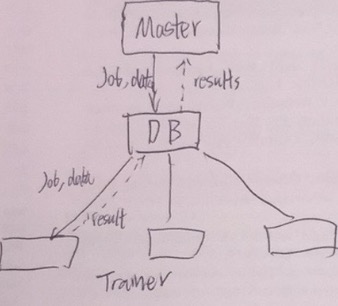 Master
Job, data
results
DB
Job, data
result
Trainer